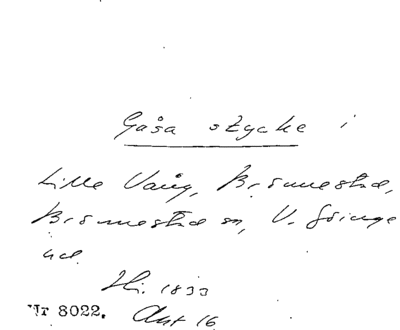 Gåsa stycke i
Lille Vång, Brönnestad,
Brönnestad sn, V. Göinge
hd.
Hi. 1833
Nr 8022. Akt 16